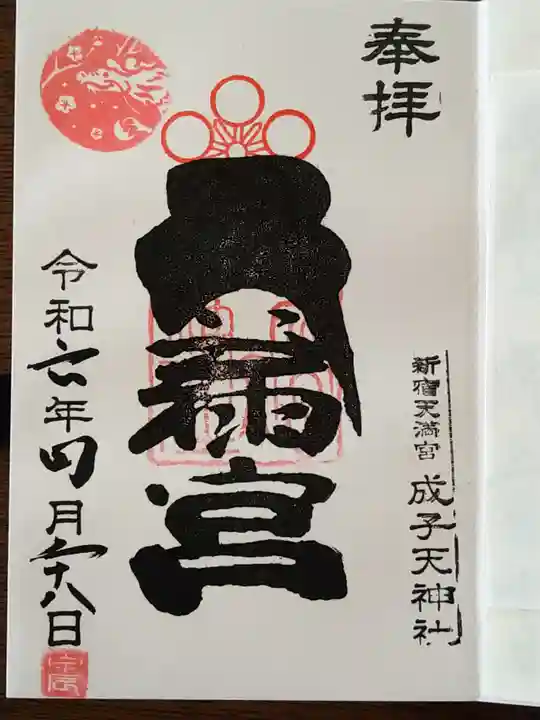 奉拝
新宿天満宮
成子天神社
天満宮
令和六年四月二十八日